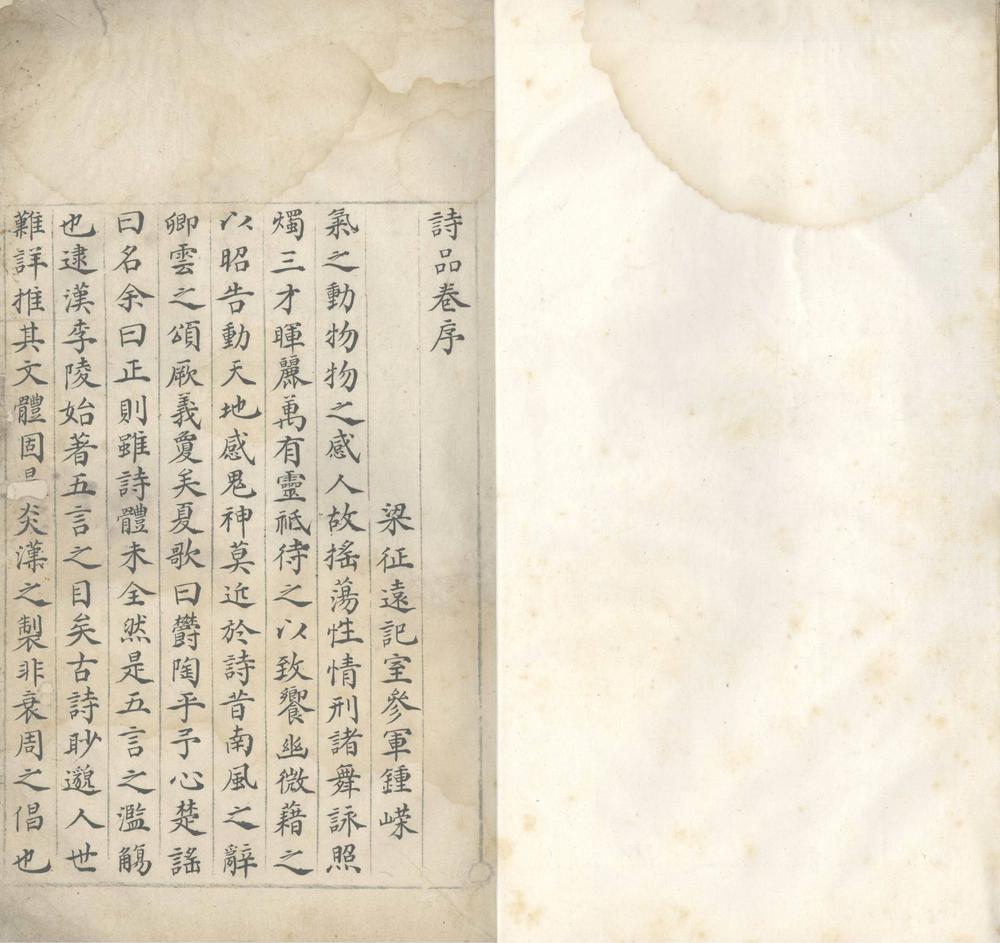 詩品卷序
梁征遠記室參軍鍾嶸
氣之動物物之感人故搖蕩性情刑諸舞詠照
燭三才暉麗萬有靈祗待之以致饗幽微藉之
以昭告動天地感鬼神莫近於詩昔南風之辭
卿雲之頌厥義敻矣夏歌曰鬱陶乎予心楚謠
曰名余曰正則雖詩體未全然是五言之濫觴
也逮漢李陵始著五言之目矣古詩眇邈人世
難詳推其文體固炎漢之製非衰周之倡也